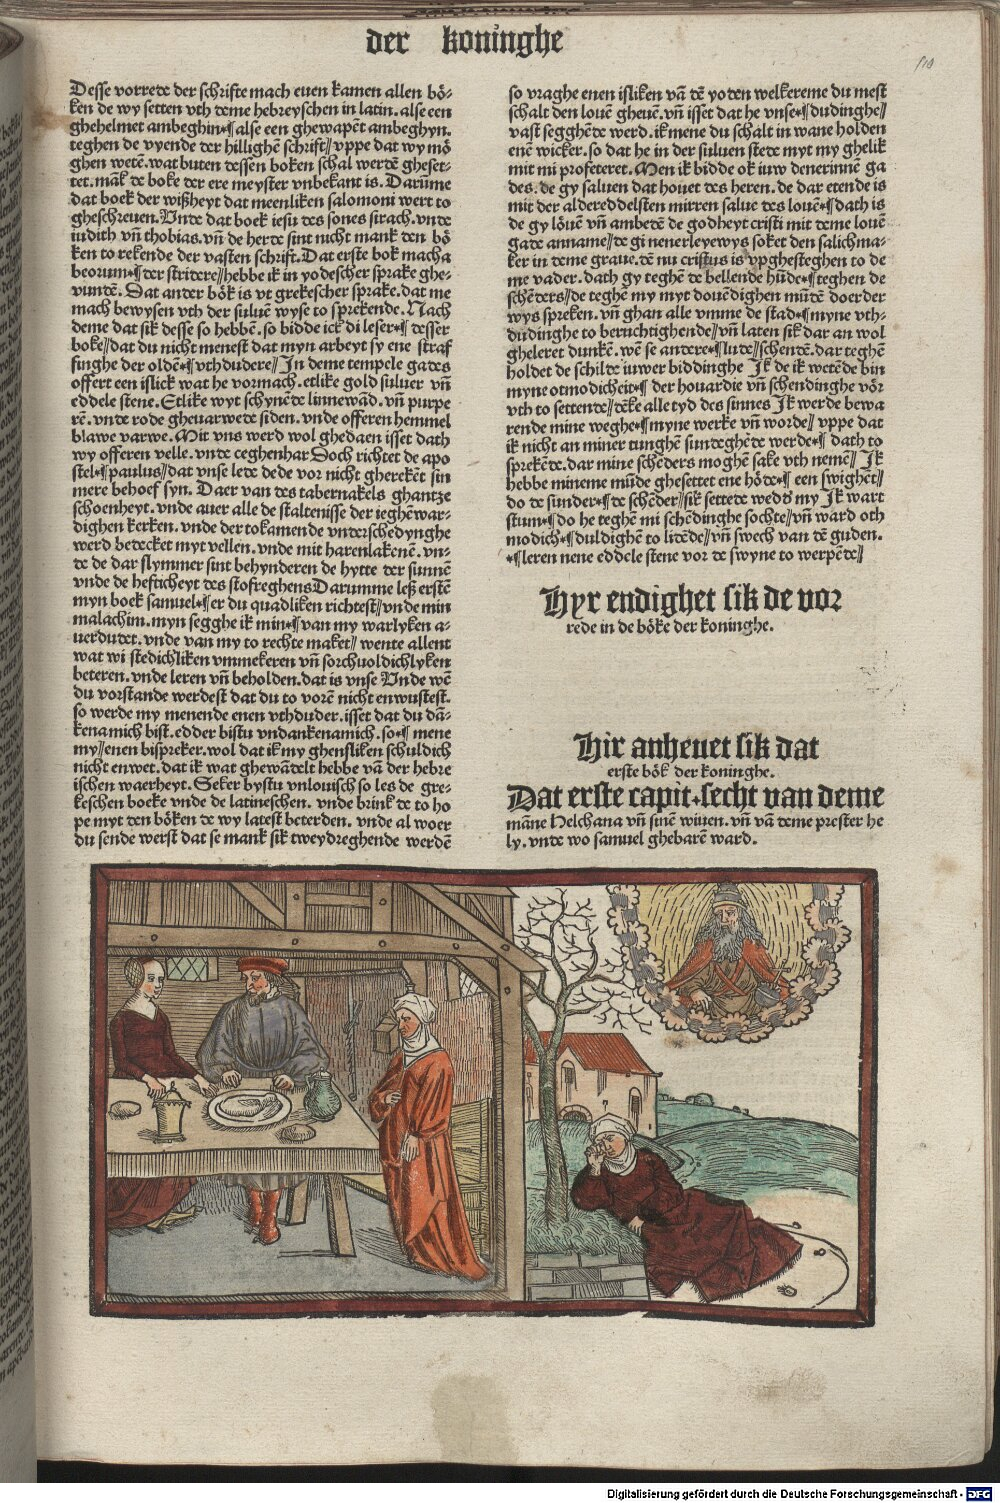 der koninghe
Desse vorrede der schrifte mach euen kamen allen bö-
ken de wy setten vth deme hebreyschen in latin. alse een
ghehelmet ambeghin·¶ alse een ghewapēt ambeghyn.
teghen de vyende der hillighē schrift// vppe dat wy mö
ghen wetē. wat buten dessen boken schal werdē gheset-
tet. māk de boke der ere meyster vnbekant is. Darūme
dat boek der wißheyt dat meenliken salomoni wert to
gheschreuen. Vnde dat boek iesu des sones sirach. vnde
iudith vn̄ thobias. vn̄ de herde sint nicht mank den bö
ken to rekende der vasten schrift. Dat erste bok macha
beorum·¶ der stridere// hebbe ik in yodescher sprake ghe-
vundē. Dat ander bök is vt grekescher sprake. dat me
mach bewysen vth der suluē wyse to sprekende. Nach
deme dat sik desse so hebbē. so bidde ick di leser·¶ desser
boke// dat du nicht menest dat myn arbeyt sy ene straf
finghe der oldē·¶ vthdudere// In deme tempele gades
offert een islick wat he vormach. etlike gold suluer vn̄
eddele stene. Etlike wyt schynēde linnewād. vn̄ purpe
rē. vnde rode gheuarwede siden. vnde offeren hemmel
blawe varwe. Mit vns werd wol ghedaen isset dath
wy offeren velle. vnde ceghenhar Doch richtet de apo
stel·¶ paulus// dat vnse lede dede vor nicht gherekēt sin
mere behoef syn. Daer van des tabernakels ghantze
schoenheyt. vnde auer alle de staltenisse der ieghēwar-
dighen kerken. vnde der tokamende vnderschedynghe
werd bedecket myt vellen. vnde mit harenlakenē. vn-
de de dar slymmer sint behynderen de hytte der sunnē
vnde de hefticheyt des stofreghens Darumme leß erstē
myn boek samuel·¶ er du quadliken richtest// vnde min
malachim. myn segghe ik min·¶ van my warlyken a-
uerdudet. vnde van my to rechte maket// wente allent
wat wi stedichliken vmmekeren vn̄ sorchuoldichlyken
beteren. vnde leren vn̄ beholden. dat is vnse Vnde wē
du vorstande werdest dat du to vorē nicht enwustest.
so werde my menende enen vthduder. isset dat du dā-
kenamich bist. edder bistu vndankenamich. so·¶ mene
my// enen bispreker. wol dat ik my ghensliken schuldich
nicht enwet. dat ik wat ghewādelt hebbe vā der hebre
ischen waerheyt. Seker bystu vnlouisch so les de gre-
keschen boeke vnde de latineschen. vnde brink de to ho
pe myt den böken de wy latest beterden. vnde al woer
du sende werst dat se mank sik tweydreghende werdē
so vraghe enen isliken vā dē yoden welkereme du mest
schalt den louē gheuē. vn̄ isset dat he vnse·¶ dudinghe//
vast segghēde werd. ik mene du schalt in wane holden
enē wicker. so dat he in der suluen stede myt my ghelik
mit mi profeteret. Men ik bidde ok iuw denerinnē ga
des. de gy saluen dat houet des heren. de dar etende is
mit der aldereddelsten mirren salue des louē·¶ dath is
de gy löuē vn̄ ambedē de godheyt cristi mit deme louē
gade anname// de gi nenerleyewys soket den salichma-
ker in deme graue. dē nu cristus is vpghesteghen to de
me vader. dath gy teghē de bellende hūde·¶ teghen de
schēders// de teghē my myt douēdighen mūdē doerder
wys spreken. vn̄ ghan alle vmme de stad·¶ myne vth-
dudinghe to beruchtighende// vn̄ laten sik dar an wol
gheleret dunkē. wē se andere·¶ lude// schendē. dar teghē
holdet de schilde iuwer biddinghe Ik de ik wetēde bin
myne otmodicheit·¶ der houardie vn̄ schendinghe vör
vth to settende// dēke alle tyd des sinnes Ik werde bewa
rende mine weghe·¶ myne werke vn̄ worde// vppe dat
ik nicht an miner tunghē sundeghēde werde·¶ dath to
sprekēde. dar mine schēders moghē sake vth nemē// Ik
hebbe mineme mūde ghesettet ene höde·¶ een swighēt//
do de sunder·¶ de schēder// sik settede wedd my Ik wart
stum·¶ do he teghē mi schēdinghe sochte// vn̄ ward oth
modich·¶ duldighē to lidēde// vn̄ swech van dē guden.
·¶ leren nene eddele stene vor de swyne to werpēde//
Hyr endighet sik de vor
rede in de böke der koninghe.
Hir anheuet sik dat
erste bök der koninghe.
Dat erste capit·secht van deme
māne Helchana vn̄ sinē wiuen. vn̄ vā deme prester he
ly. vnde wo samuel ghebarē ward.
Digitalisierung gefördert durch die Deutsche Forschungsgemeinschaft - DFG